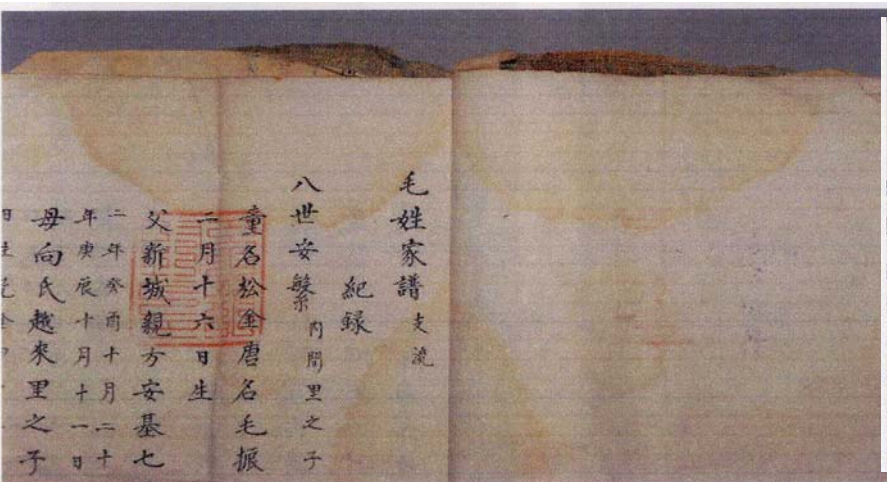 毛姓家譜支流
紀録
八世安繁内間里之子
童名松金唐名毛振
二月十六日生
父新城親方安基七
二年癸酉十月二十
年庚辰十月十一日
母向氏越來里之子